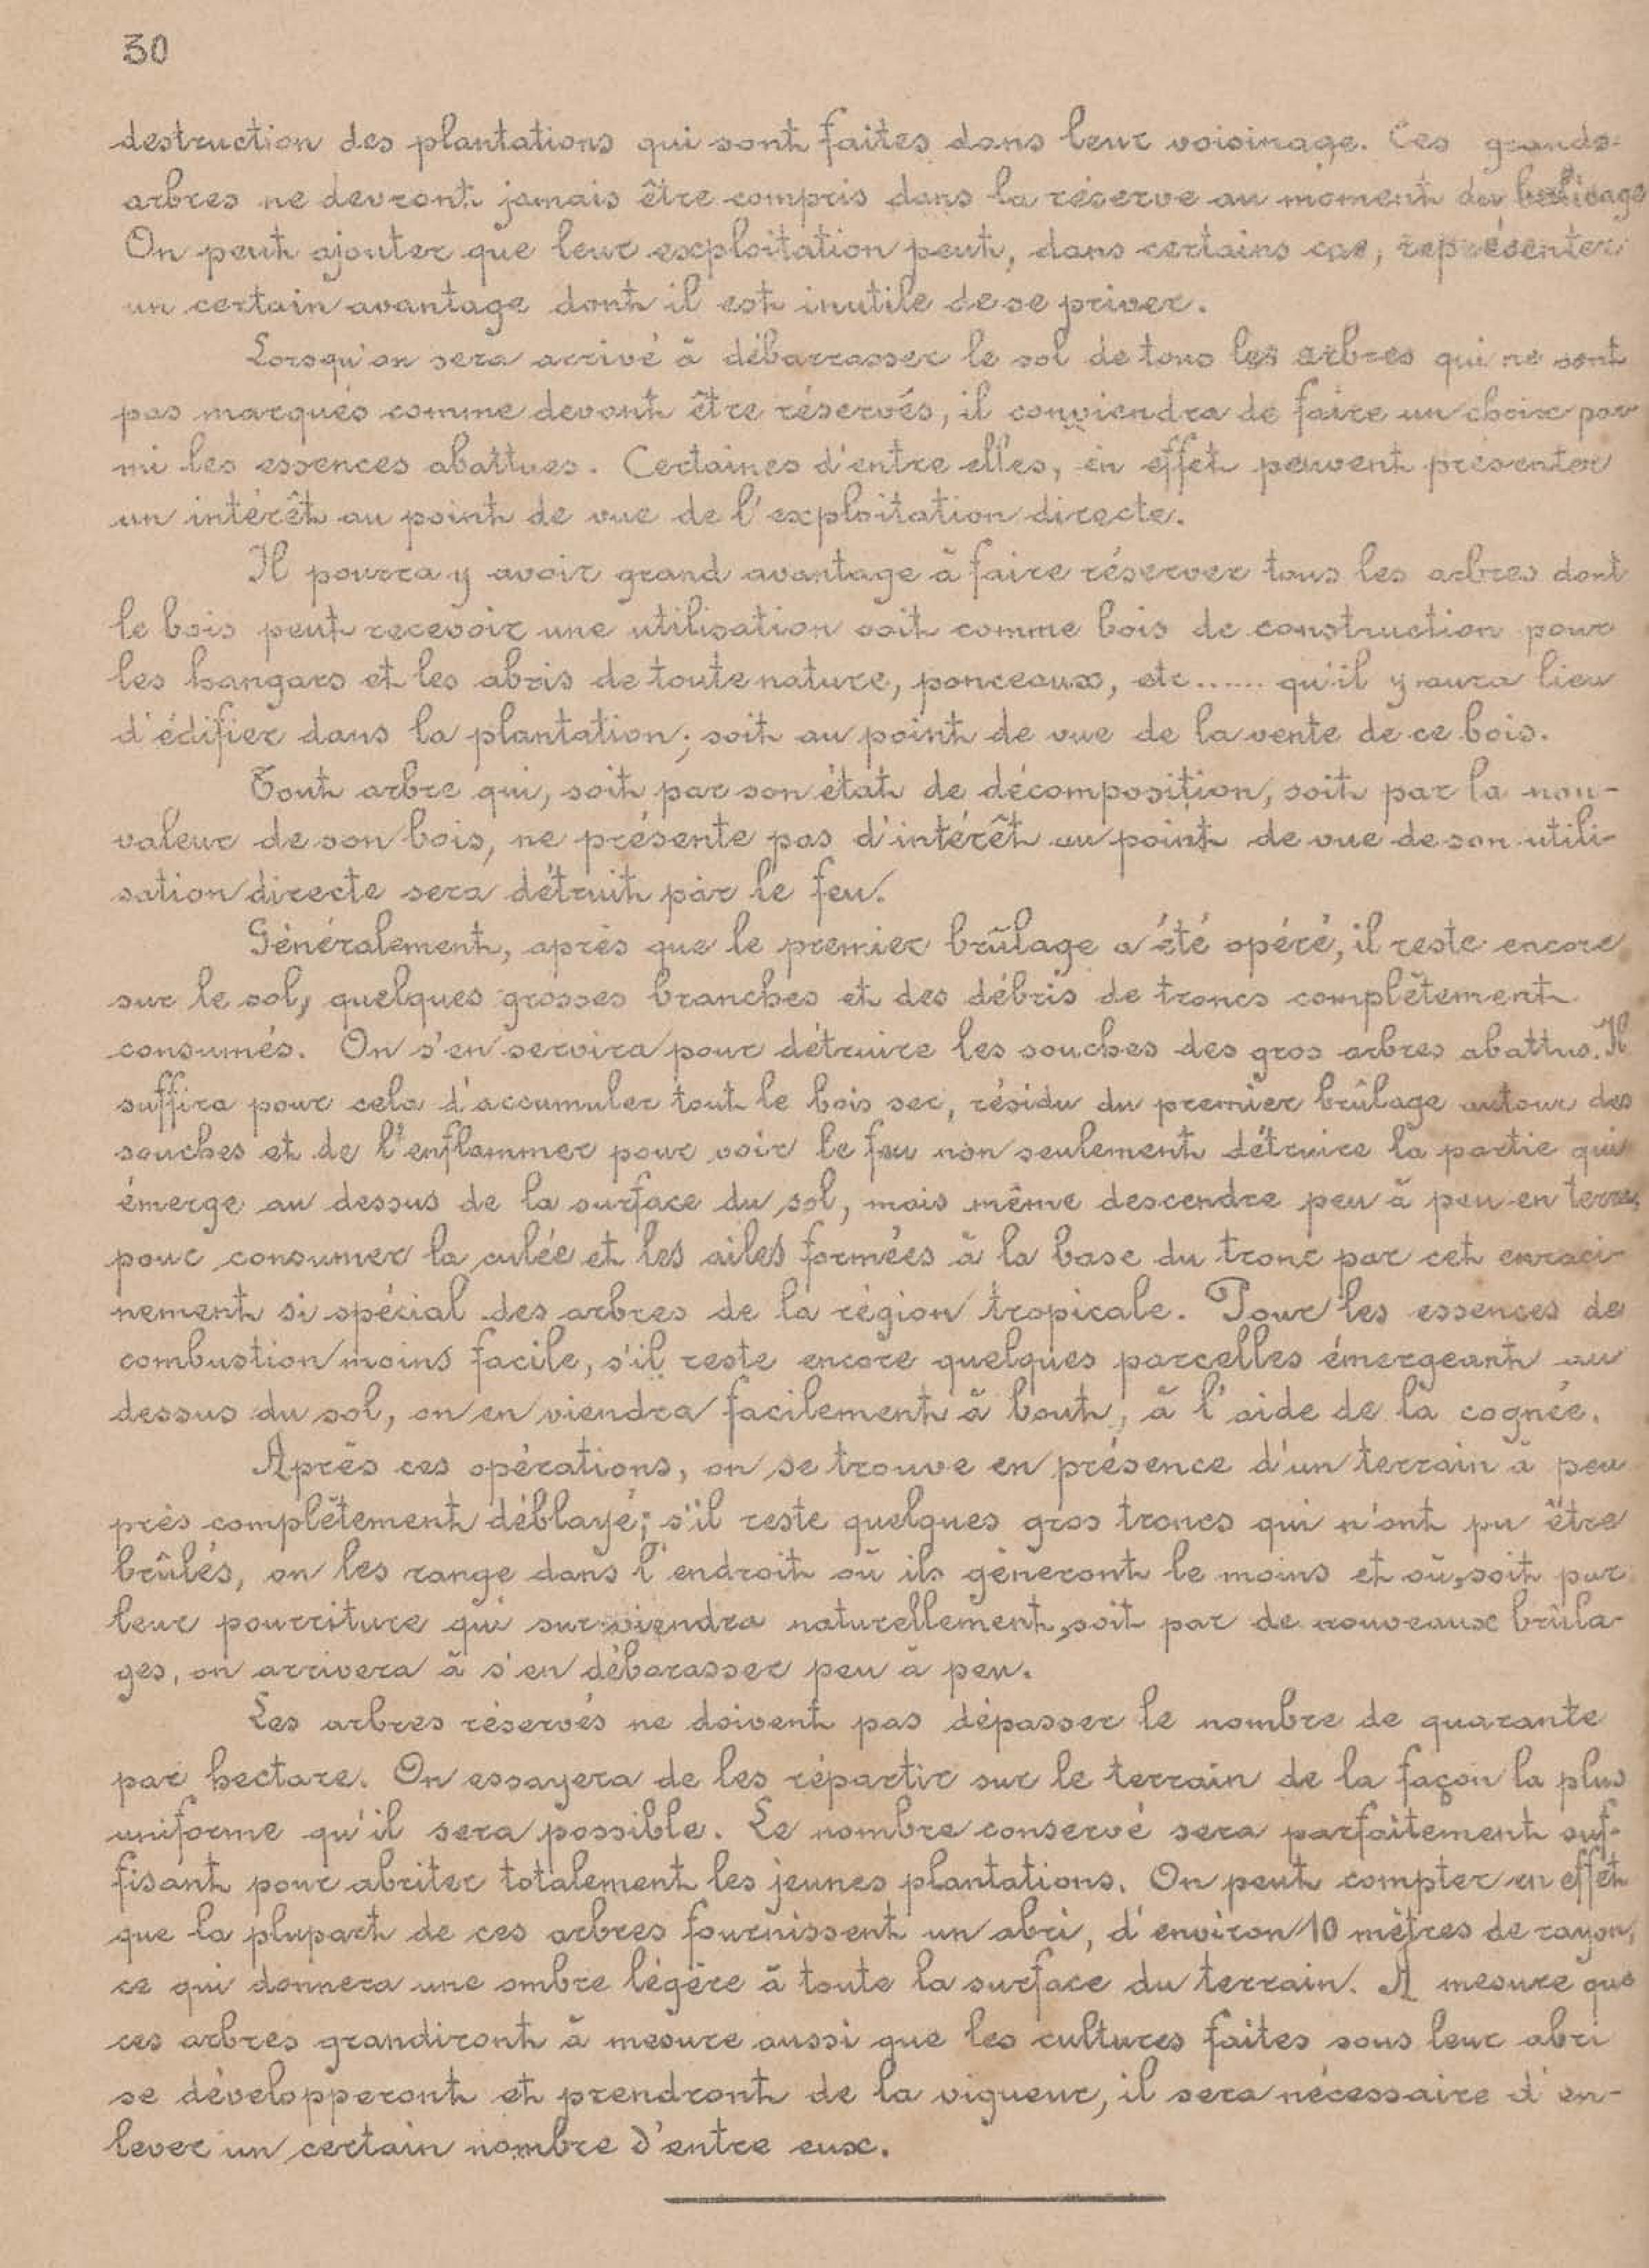 30
destruction des plantations qui sont faites dans leur voisinage. Ces grands
arbres ne devront jamais être compris dans la réserve au moment du balivage
On peut ajouter que leur exploitation peut, dans certains cas, représenter
un certain avantage dont il est inutile de se priver.
Lorsqu'on sera arrivé à débarrasser le sol de tous les arbres qui ne sont
pas marqués comme devant être réservés, il conviendra de faire un choix par
mi les essences abattues. Certaines d'entre elles, en effet peuvent présenter
un intérêt au point de vue de l'exploitation directe.
Il pourra y avoir grand avantage à faire réserver tous les arbres dont
le bois peut recevoir une utilisation soit comme bois de construction pour
les hangars et les abris de toute nature, ponceaux, etc...... qu'il y aura lieu
d'édifier dans la plantation; soit au point de vue de la vente de ce bois.
Tout arbre qui, soit par son état de décomposition, soit par la non-
valeur de son bois, ne présente pas d'intérêt au point de vue de son utili-
sation directe sera détruit par le feu.
Généralement, après que le premier brûlage a été opéré, il reste encore
sur le sol, quelques grosses branches et des débris de troncs complètement
consumés. On s'en servira pour détruire les souches des gros arbres abattus. Il
suffira pour cela d'accumuler tout le bois sec, résidu du premier brûlage autour des
souches et de l'enflammer pour voir le feu non seulement détruire la partie qui
émerge au dessus de la surface du sol, mais même descendre peu à peu en terre,
pour consumer la culée et les ailes formées à la base du tronc par cet enraci-
nement si spécial des arbres de la région tropicale. Pour les essences de
combustion moins facile, s'il reste encore quelques parcelles émergeant au
dessus du sol, on en viendra facilement à bout, à l'aide de la cognée.
Après ces opérations, on se trouve en présence d'un terrain à peu
près complètement déblayé; s'il reste quelques gros troncs qui n'ont pu être
brûlés, on les range dans l'endroit où ils gêneront le moins et où, soit par
leur pourriture qui surviendra naturellement, soit par de nouveaux brûla-
ges, on arrivera à s'en débarasser peu à peu.
Les arbres réservés ne doivent pas dépasser le nombre de quarante
par hectare. On essayera de les répartir sur le terrain de la façon la plus
uniforme qu'il sera possible. Le nombre conservé sera parfaitement suf-
fisant pour abriter totalement les jeunes plantations. On peut compter en effet
que la plupart de ces arbres fournissent un abri, d'environ 10 mètres de rayon,
ce qui donnera une ombre légère à toute la surface du terrain. A mesure que
ces arbres grandiront à mesure aussi que les cultures faites sous leur abri
se développeront et prendront de la vigueur, il sera nécessaire d'en-
lever un certain nombre d'entre eux.